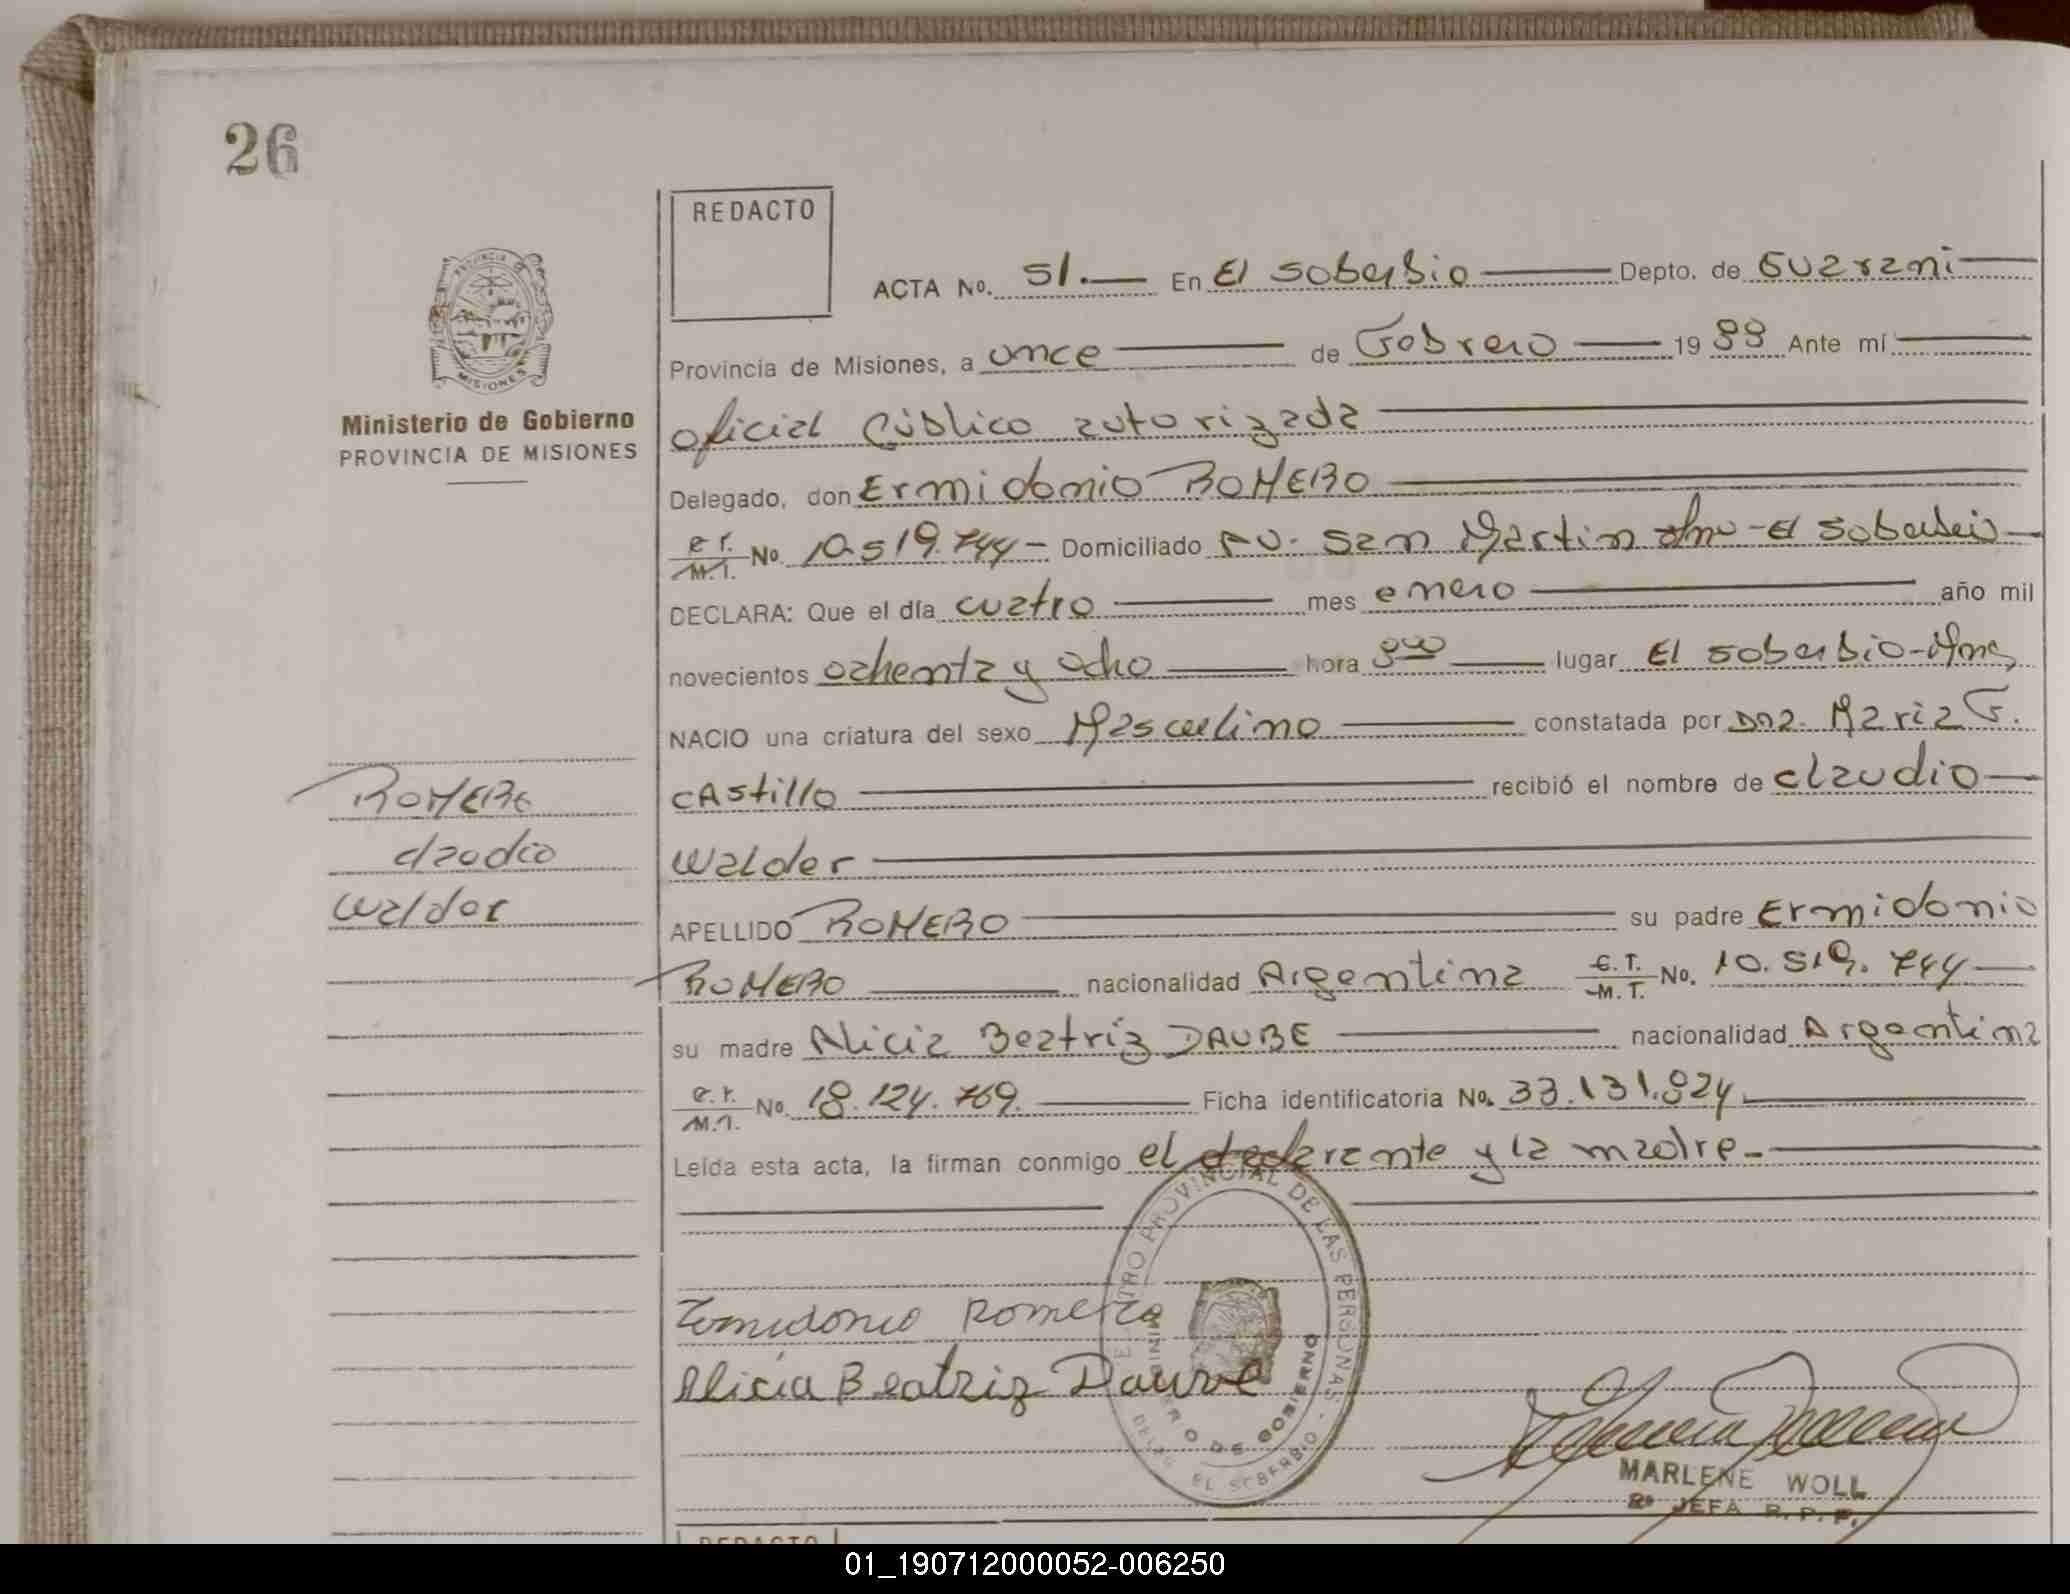 26
REDACTO
ACTA No. 51. En El Soberbio Depto. de Guarani
Ministerio de Gobierno
PROVINCIA DE MISIONES
Provincia de Misiones, a once de Febrero 1988 Ante mí
oficial Público autorizada
Delegado, don Ermidonio ROMERO
M.I. No. 10.519.744 - Domiciliado AV. San Martin - El Soberbio
DECLARA: Que el día cuatro mes enero año mil
novecientos ochenta y ocho hora lugar El Soberbio - Mnes
NACIO una criatura del sexo Masculino constatada por Dña. Maria F.
Castillo recibió el nombre de Claudio
Walder
ROMERO
Claudio
Walder
APELLIDO ROMERO su padre Ermidonio
ROMERO nacionalidad Argentina M. I. No. 10.519.744
su madre Alicia Beatriz DAUBE nacionalidad Argentina
M.I. No. 18.124.769. Ficha identificatoria No. 33.131.824
Leída esta acta, la firman conmigo el declarante y la madre.
PROVINCIAL DE LAS PERSONAS
MINISTERIO DE GOBIERNO
DELEG. EL SOBERBIO
Romero
Alicia Beatriz Daube
MARLENE WOLL
2º JEFA R. P. P.
REDACTO
01_190712000052-006250